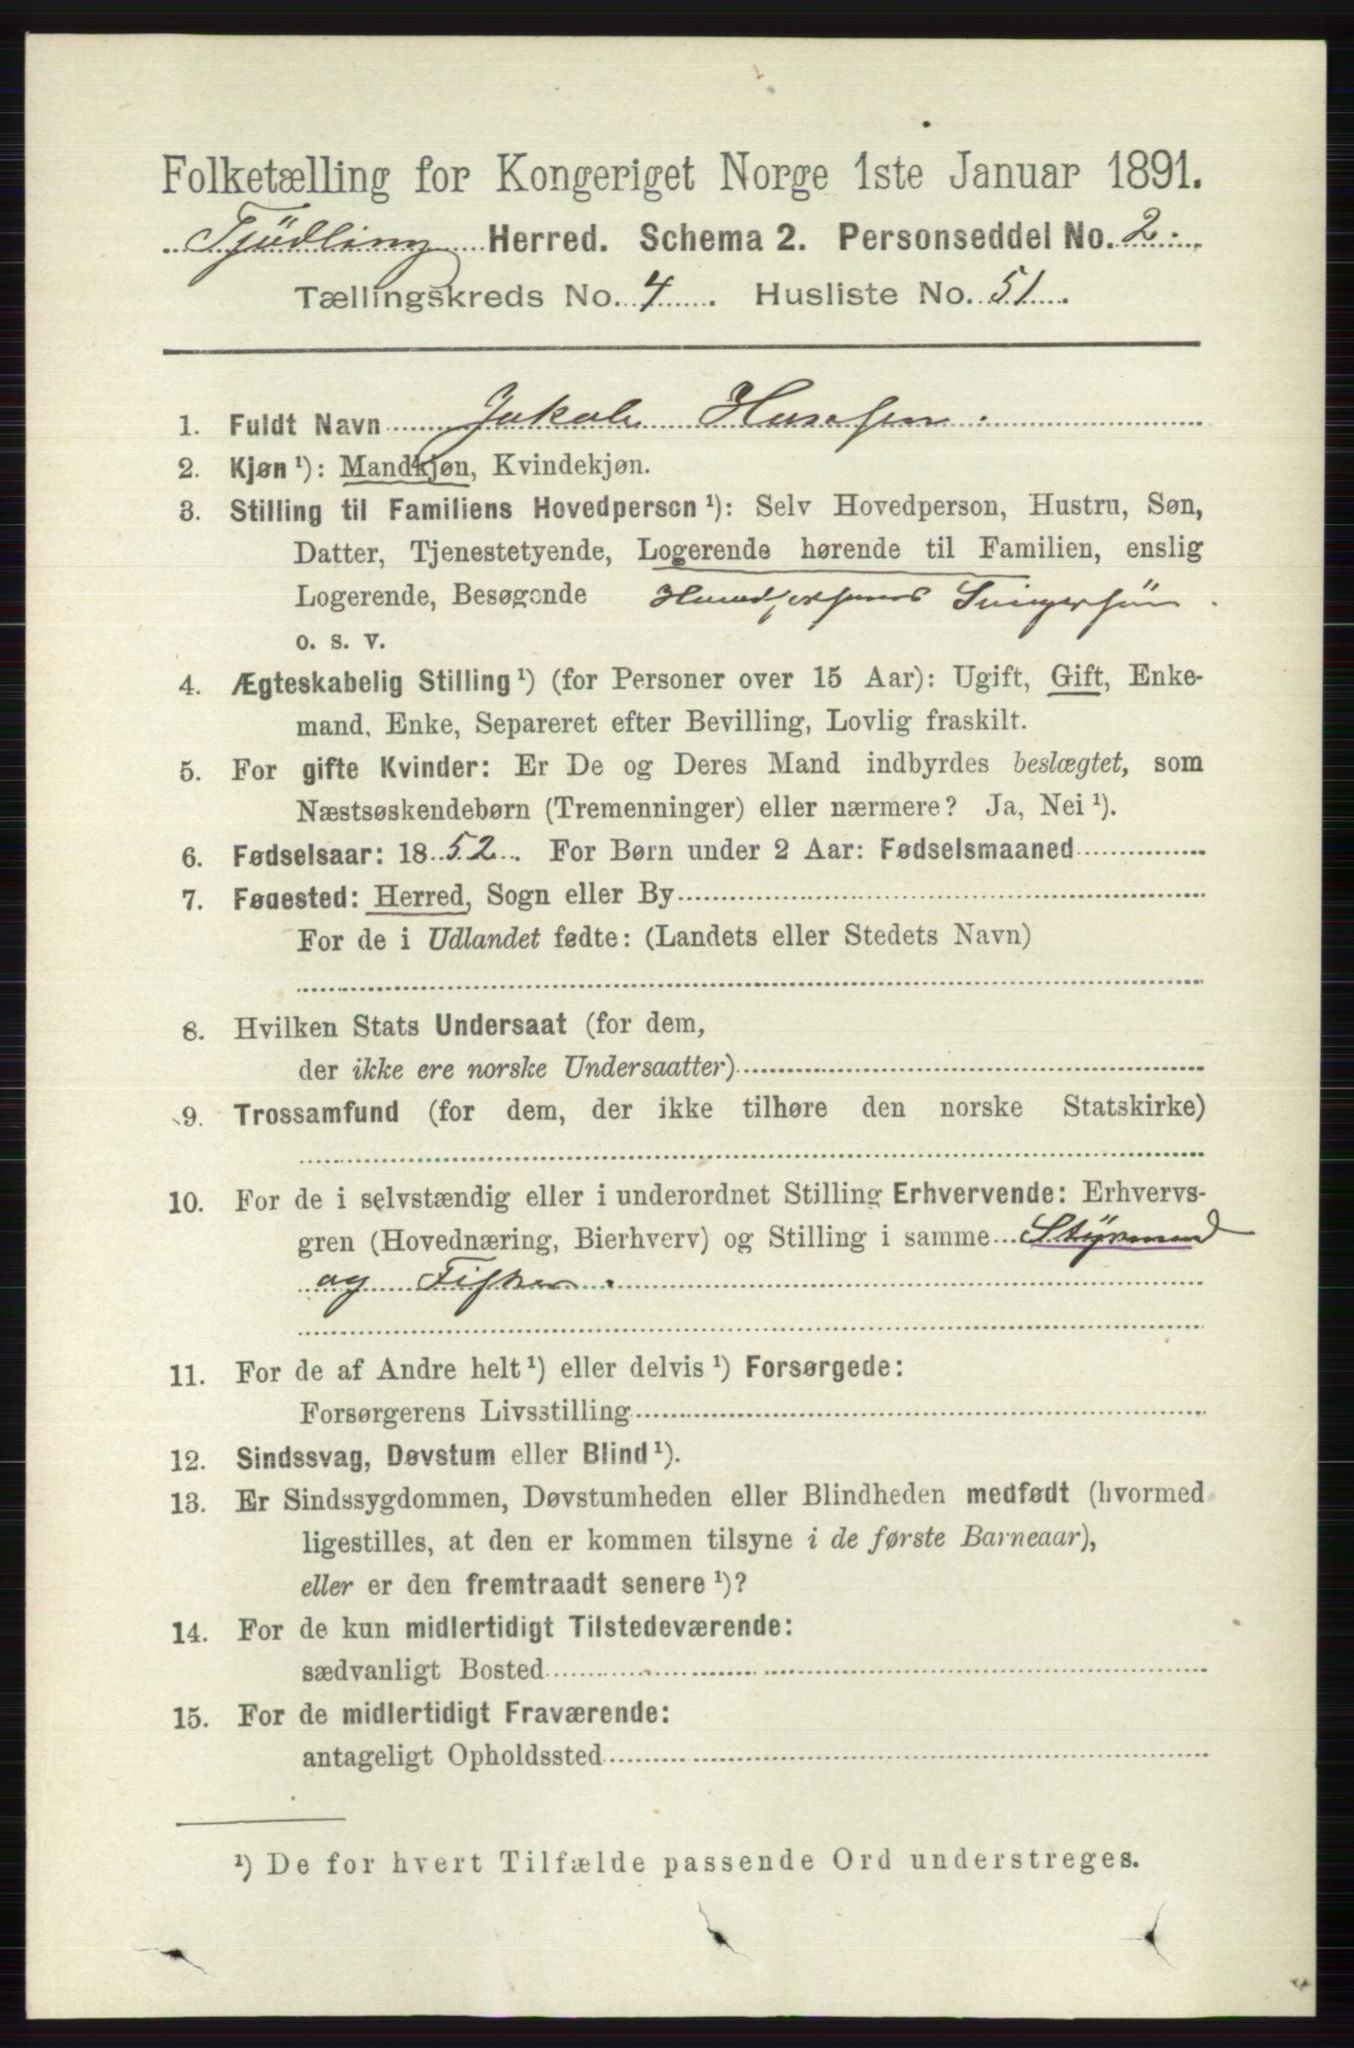 Folketælling for Kongeriget Norge 1ste Januar 1891.
Tjødling Herred. Schema 2. Personseddel No. 2.
Tællingskreds No. 4. Husliste No. 51.
1. Fuldt Navn Jakob Hansen.
2. Kjøn ¹): Mandkjøn, Kvindekjøn.
3. Stilling til Familiens Hovedperson ¹): Selv Hovedperson, Hustru, Søn,
Datter, Tjenestetyende, Logerende hørende til Familien, enslig
Logerende, Besøgende Svigersøn.
o. s. v.
4. Ægteskabelig Stilling ¹) (for Personer over 15 Aar): Ugift, Gift, Enke-
mand, Enke, Separeret efter Bevilling, Lovlig fraskilt.
5. For gifte Kvinder: Er De og Deres Mand indbyrdes beslægtet, som
Næstsøskendebørn (Tremenninger) eller nærmere? Ja, Nei ¹).
6. Fødselsaar: 1852. For Børn under 2 Aar: Fødselsmaaned
7. Fødested: Herred, Sogn eller By
For de i Udlandet fødte: (Landets eller Stedets Navn)
8. Hvilken Stats Undersaat (for dem,
der ikke ere norske Undersaatter)
9. Trossamfund (for dem, der ikke tilhøre den norske Statskirke)
10. For de i selvstændig eller i underordnet Stilling Erhvervende: Erhvervs-
gren (Hovednæring, Bierhverv) og Stilling i samme Styrmand
og Fisker.
11. For de af Andre helt ¹) eller delvis ¹) Forsørgede:
Forsørgerens Livsstilling
12. Sindssvag, Døvstum eller Blind ¹).
13. Er Sindssygdommen, Døvstumheden eller Blindheden medfødt (hvormed
ligestilles, at den er kommen tilsyne i de første Barneaar),
eller er den fremtraadt senere ¹)?
14. For de kun midlertidigt Tilstedeværende:
sædvanligt Bosted
15. For de midlertidigt Fraværende:
antageligt Opholdssted
¹) De for hvert Tilfælde passende Ord understreges.